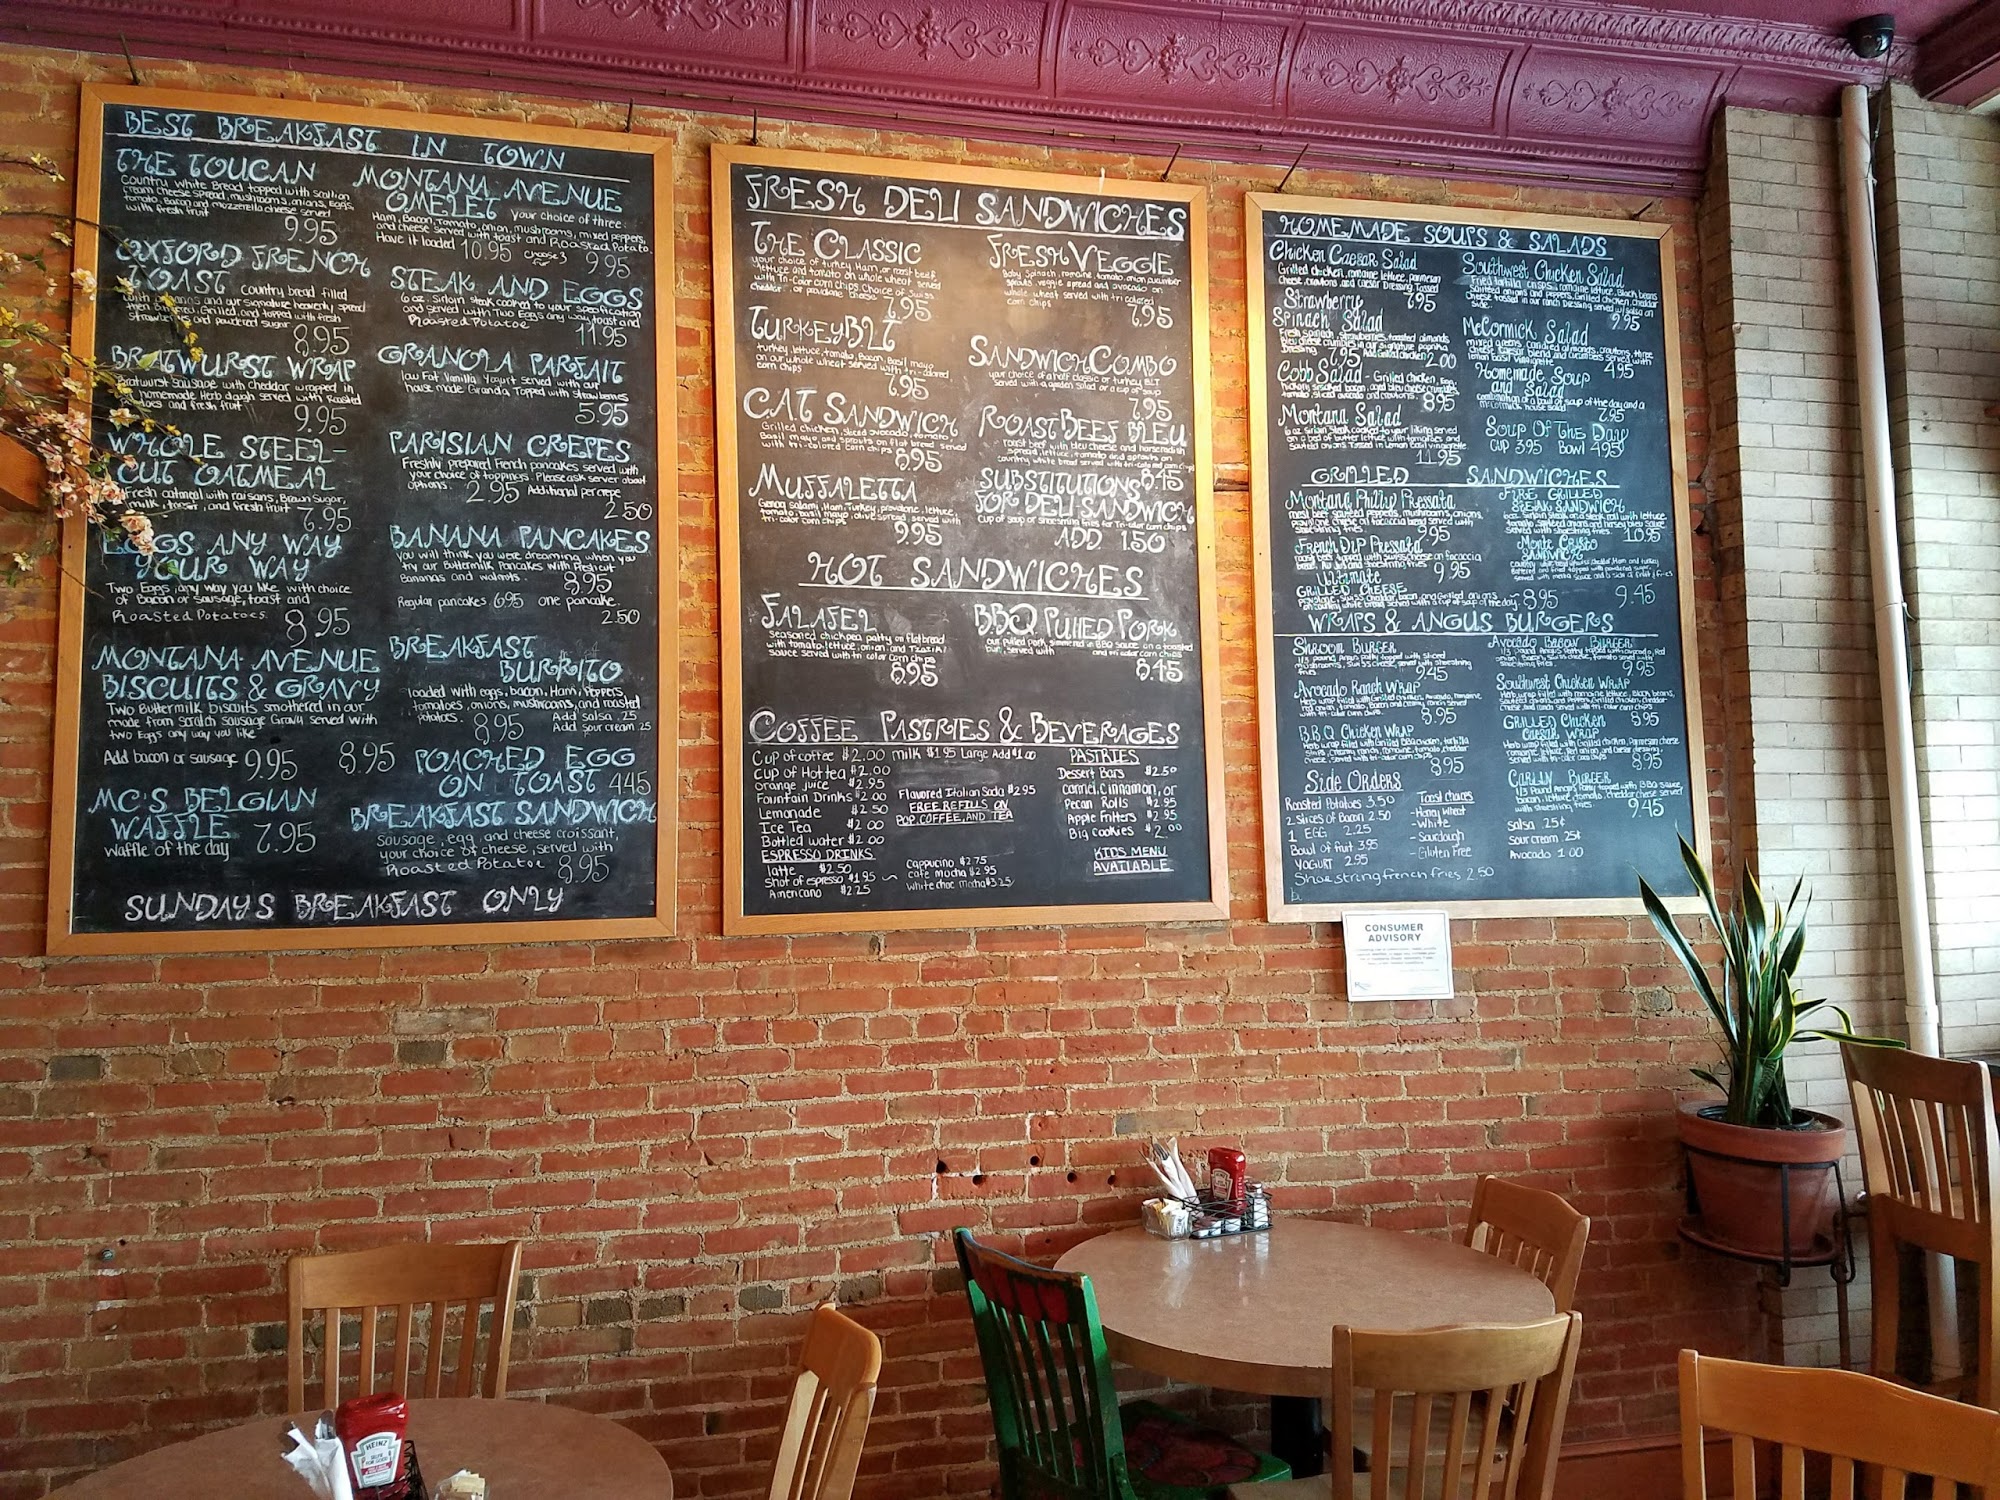 BEST BREAKFAST IN TOWN
THE TOUCAN
Country White Bread topped with
cream cheese spread, mushrooms, onions, Eggs,
tomato, Bacon and mozzerella cheese served
with fresh fruit
9.95
OXFORD FRENCH
TOAST country bread filled
with bananas and our signature heavenly spread
then Battered, Grilled, and topped with fresh
strawberries and powdered sugar
8.95
BRATWURST WRAP
Bratwurst Sausage with cheddar wrapped in
homemade Herb dough served with Roasted
Potatoes and fresh fruit
9.95
WHOLE STEEL-
CUT OATMEAL
Fresh oatmeal with raisans, Brown Sugar,
milk, toast, and fresh fruit 7.95
EGGS ANY WAY
YOUR WAY
Two Eggs, any way you like with choice
of Bacon or Sausage, toast and
Roasted Potatoes.
8.95
MONTANA AVENUE
BISCUITS & GRAVY
Two Buttermilk biscuits smothered in our
made from scratch sausage Gravy served with
two Eggs any way you like
8.95
Add bacon or sausage 9.95
MC'S BELGIAN
WAFFLE 7.95
Waffle of the day
MONTANA AVENUE
OMELET your choice of three:
Ham, Bacon, Tomato, onion, mushrooms, mixed peppers,
and cheese served with toast and Roasted Potato.
Have it loaded 10.95 choose 3 for 9.95
STEAK AND EGGS
6 oz. Sirloin steak cooked to your specification
and served with Two Eggs any way, toast and
Roasted Potatoe
11.95
GRANOLA PARFAIT
low Fat Vanilla Yogurt served with our
house made Granola Topped with strawberries
5.95
PARISIAN CREPES
Freshly prepared French pancakes served with
your choice of toppings. Please ask server about
options. 2.95 Additional per crepe
2.50
BANANA PANCAKES
you will think you were dreaming when you
try our Buttermilk Pancakes with Fresh cut
Bananas and walnuts. 8.95
Regular pancakes 6.95 one pancake.
2.50
BREAKFAST
BURRITO
loaded with eggs, bacon, Ham, Peppers,
tomatoes, onions, mushrooms, and roasted
potatoes. 8.95 Add salsa .25
Add sour cream .25
POACHED EGG
ON TOAST 4.45
BREAKFAST SANDWICH
Sausage, egg, and cheese croissant,
your choice of cheese, served with
Roasted Potatoe 8.95
SUNDAYS BREAKFAST ONLY
FRESH DELI SANDWICHES
THE CLASSIC
your choice of turkey, Ham, or roast beef,
lettuce and tomato on whole wheat served
with Tri-Color corn chips. Choice of Swiss,
cheddar or provolone cheese
7.95
TURKEY BLT
turkey, lettuce, tomato, Bacon, Basil mayo
on our whole wheat served with tri-colored
corn chips
6.95
C.A.T SANDWICH
Grilled chicken, sliced avocado, tomato,
Basil mayo and sprouts on flat bread served
with tri-colored corn chips
8.95
MUFFALETTA
Genoa salami, Ham, Turkey, provolone, lettuce,
tomato, basil mayo, olive spread served with
tri-color corn chips
9.95
FRESH VEGGIE
Baby Spinach, romaine, tomato, onion, cucumber
sprouts, veggie spread and avocado on
whole wheat served with tri colored
corn chips
7.95
SANDWICH COMBO
your choice of a half classic or turkey BLT
served with a garden salad or a cup of soup
7.95
ROAST BEEF BLEU
roast beef with bleu cheese and horseradish
spread, lettuce, tomato and sprouts on
country white bread served with tri-colored corn chips
8.45
SUBSTITUTIONS
FOR DELI SANDWICH
Cup of soup or shoestring fries for Tri-color corn chips
ADD 1.50
HOT SANDWICHES
FALAFEL
seasoned chickpea patty on flatbread
with tomato, lettuce, onion, and Tzaziki
sauce served with tri color corn chips
8.95
BBQ PULLED PORK
our pulled pork simmered in BBQ sauce on a toasted
bun, served with and tri color corn chips
8.45
COFFEE PASTRIES & BEVERAGES
Cup of coffee $2.00 milk $1.95 Large Add $1.00
Cup of Hot tea $2.00
orange juice $2.95
Fountain Drinks $2.00
Lemonade $2.50
Ice Tea $2.00
Bottled water $2.00
Flavored Italian Soda $2.95
FREE REFILLS ON
POP, COFFEE, AND TEA
ESPRESSO DRINKS
latte $2.50
Shot of espresso $1.95
Americano $2.25
Cappucino $2.75
cafe mocha $2.95
White choc mocha $3.25
PASTRIES
Dessert Bars $2.50
Carmel, cinnamon, or
Pecan Rolls $2.95
Apple Fritters $2.95
Big cookies $2.00
KIDS MENU
AVAILABLE
HOMEMADE SOUPS & SALADS
Chicken Caesar Salad
Grilled chicken, romaine lettuce, parmesan
Cheese, croutons, and Caesar Dressing Tossed
7.95
Strawberry
Spinach Salad
Fresh spinach, strawberries, toasted almonds,
bleu cheese crumbles in our signature paprika
Dressing 7.95 Add Grilled chicken 2.00
Cobb Salad - Grilled chicken, Egg,
hickory smoked bacon, and bleu cheese crumbles,
tomato, sliced avocado and croutons.
8.95
Montana Salad
6 oz sirloin steak cooked to your liking served
on a bed of butter lettuce with tomatoes, and
sauteed onions Tossed in Lemon Basil vinaigrette
11.95
Southwest Chicken Salad
Fried tortilla crisps, romaine lettuce, Black beans
sauteed onions and peppers, Grilled chicken, cheddar
cheese tossed in our ranch Dressing served w/salsa on
side.
9.95
McCormick Salad
mixed greens, candied almonds, croutons, three
cheese caesar blend and cucumbers served with
lemon basil vinaigrette
4.95
Homemade Soup
and Salad
combination of a bowl of soup of the day and a
McCormick house salad
7.95
Soup Of The Day
Cup 3.95 Bowl 4.95
GRILLED SANDWICHES
Montana Philly Pressata
roast beef, sauteed peppers, mushrooms, onions,
provolone cheese on foccacia bread served with
shoestring fries
7.95
French Dip Pressata
roast beef topped with swiss cheese on foccacia
bread, Au Jus and shoestring fries
9.95
Ultimate
GRILLED CHEESE
provolone, swiss, cheddar, bacon, and Grilled onions
on country white bread served with a cup of soup of the day - 8.95
FIRE GRILLED
STEAK SANDWICH
6oz. Sirloin steak and steak roll with lettuce,
tomato, sauteed onions and horsey bleu sauce
served with shoestring fries.
10.95
Monte Cristo
SANDWICH
9.45
WRAPS & ANGUS BURGERS
Shroom BURGER
1/3 pound Angus patty topped with sliced
mushrooms, Swiss cheese, served with shoestring
fries
9.45
Avocado Ranch WRAP
Herb wrap filled with Grilled chicken, Avocado, romaine
red onion, tomato, Bacon and creamy ranch served
with tri-color corn chips.
8.95
B.B.Q Chicken WRAP
Herb wrap filled with Grilled BBQ chicken, tortilla
strips, creamy ranch, romaine, tomato, cheddar
cheese, served with tri-color corn chips
8.95
Avocado Bacon BURGER
1/3 pound Angus Patty topped with avocado, Red
onion, Bacon, swiss cheese, tomato served with
shoestring fries.
9.95
Southwest Chicken WRAP
Herb wrap filled with romaine lettuce, Black beans,
sauteed onions and Peppers, Grilled chicken, cheddar
cheese, and ranch served with tri-color corn chips
8.95
GRILLED Chicken
Caesar WRAP
Herb wrap filled with Grilled chicken, Parmesan cheese
romaine lettuce, Red onion, and Caesar dressing,
served with tri-color corn chips
8.95
CARLIN BURGER
1/3 Pound Angus Patty topped with BBQ sauce
bacon, lettuce, tomato, cheddar cheese served
with shoestring fries.
9.45
Side Orders
Roasted Potatoes 3.50
2 slices of Bacon 2.50
1 EGG 2.25
Bowl of fruit 3.95
YOGURT 2.95
Shoestring french fries 2.50
Toast choices
- Honey Wheat
- White
- Sourdough
- Gluten Free
Salsa .25¢
Sour cream .25¢
Avocado 1.00
CONSUMER
ADVISORY
HEINZ